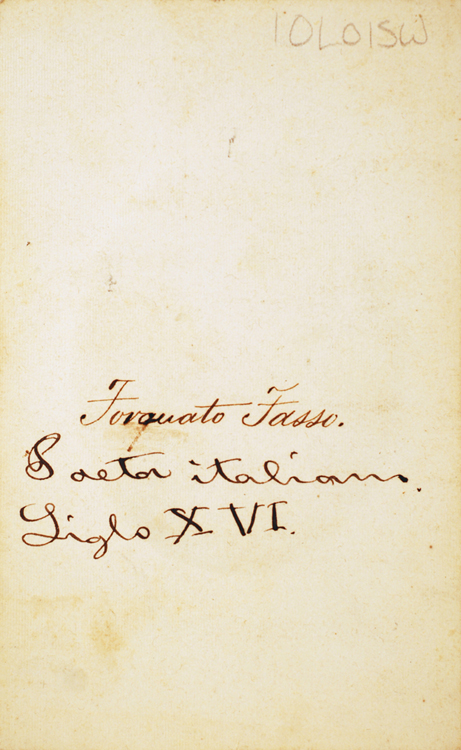 10L01SW
Torquato Tasso.
Poeta italiano.
Siglo XVI.